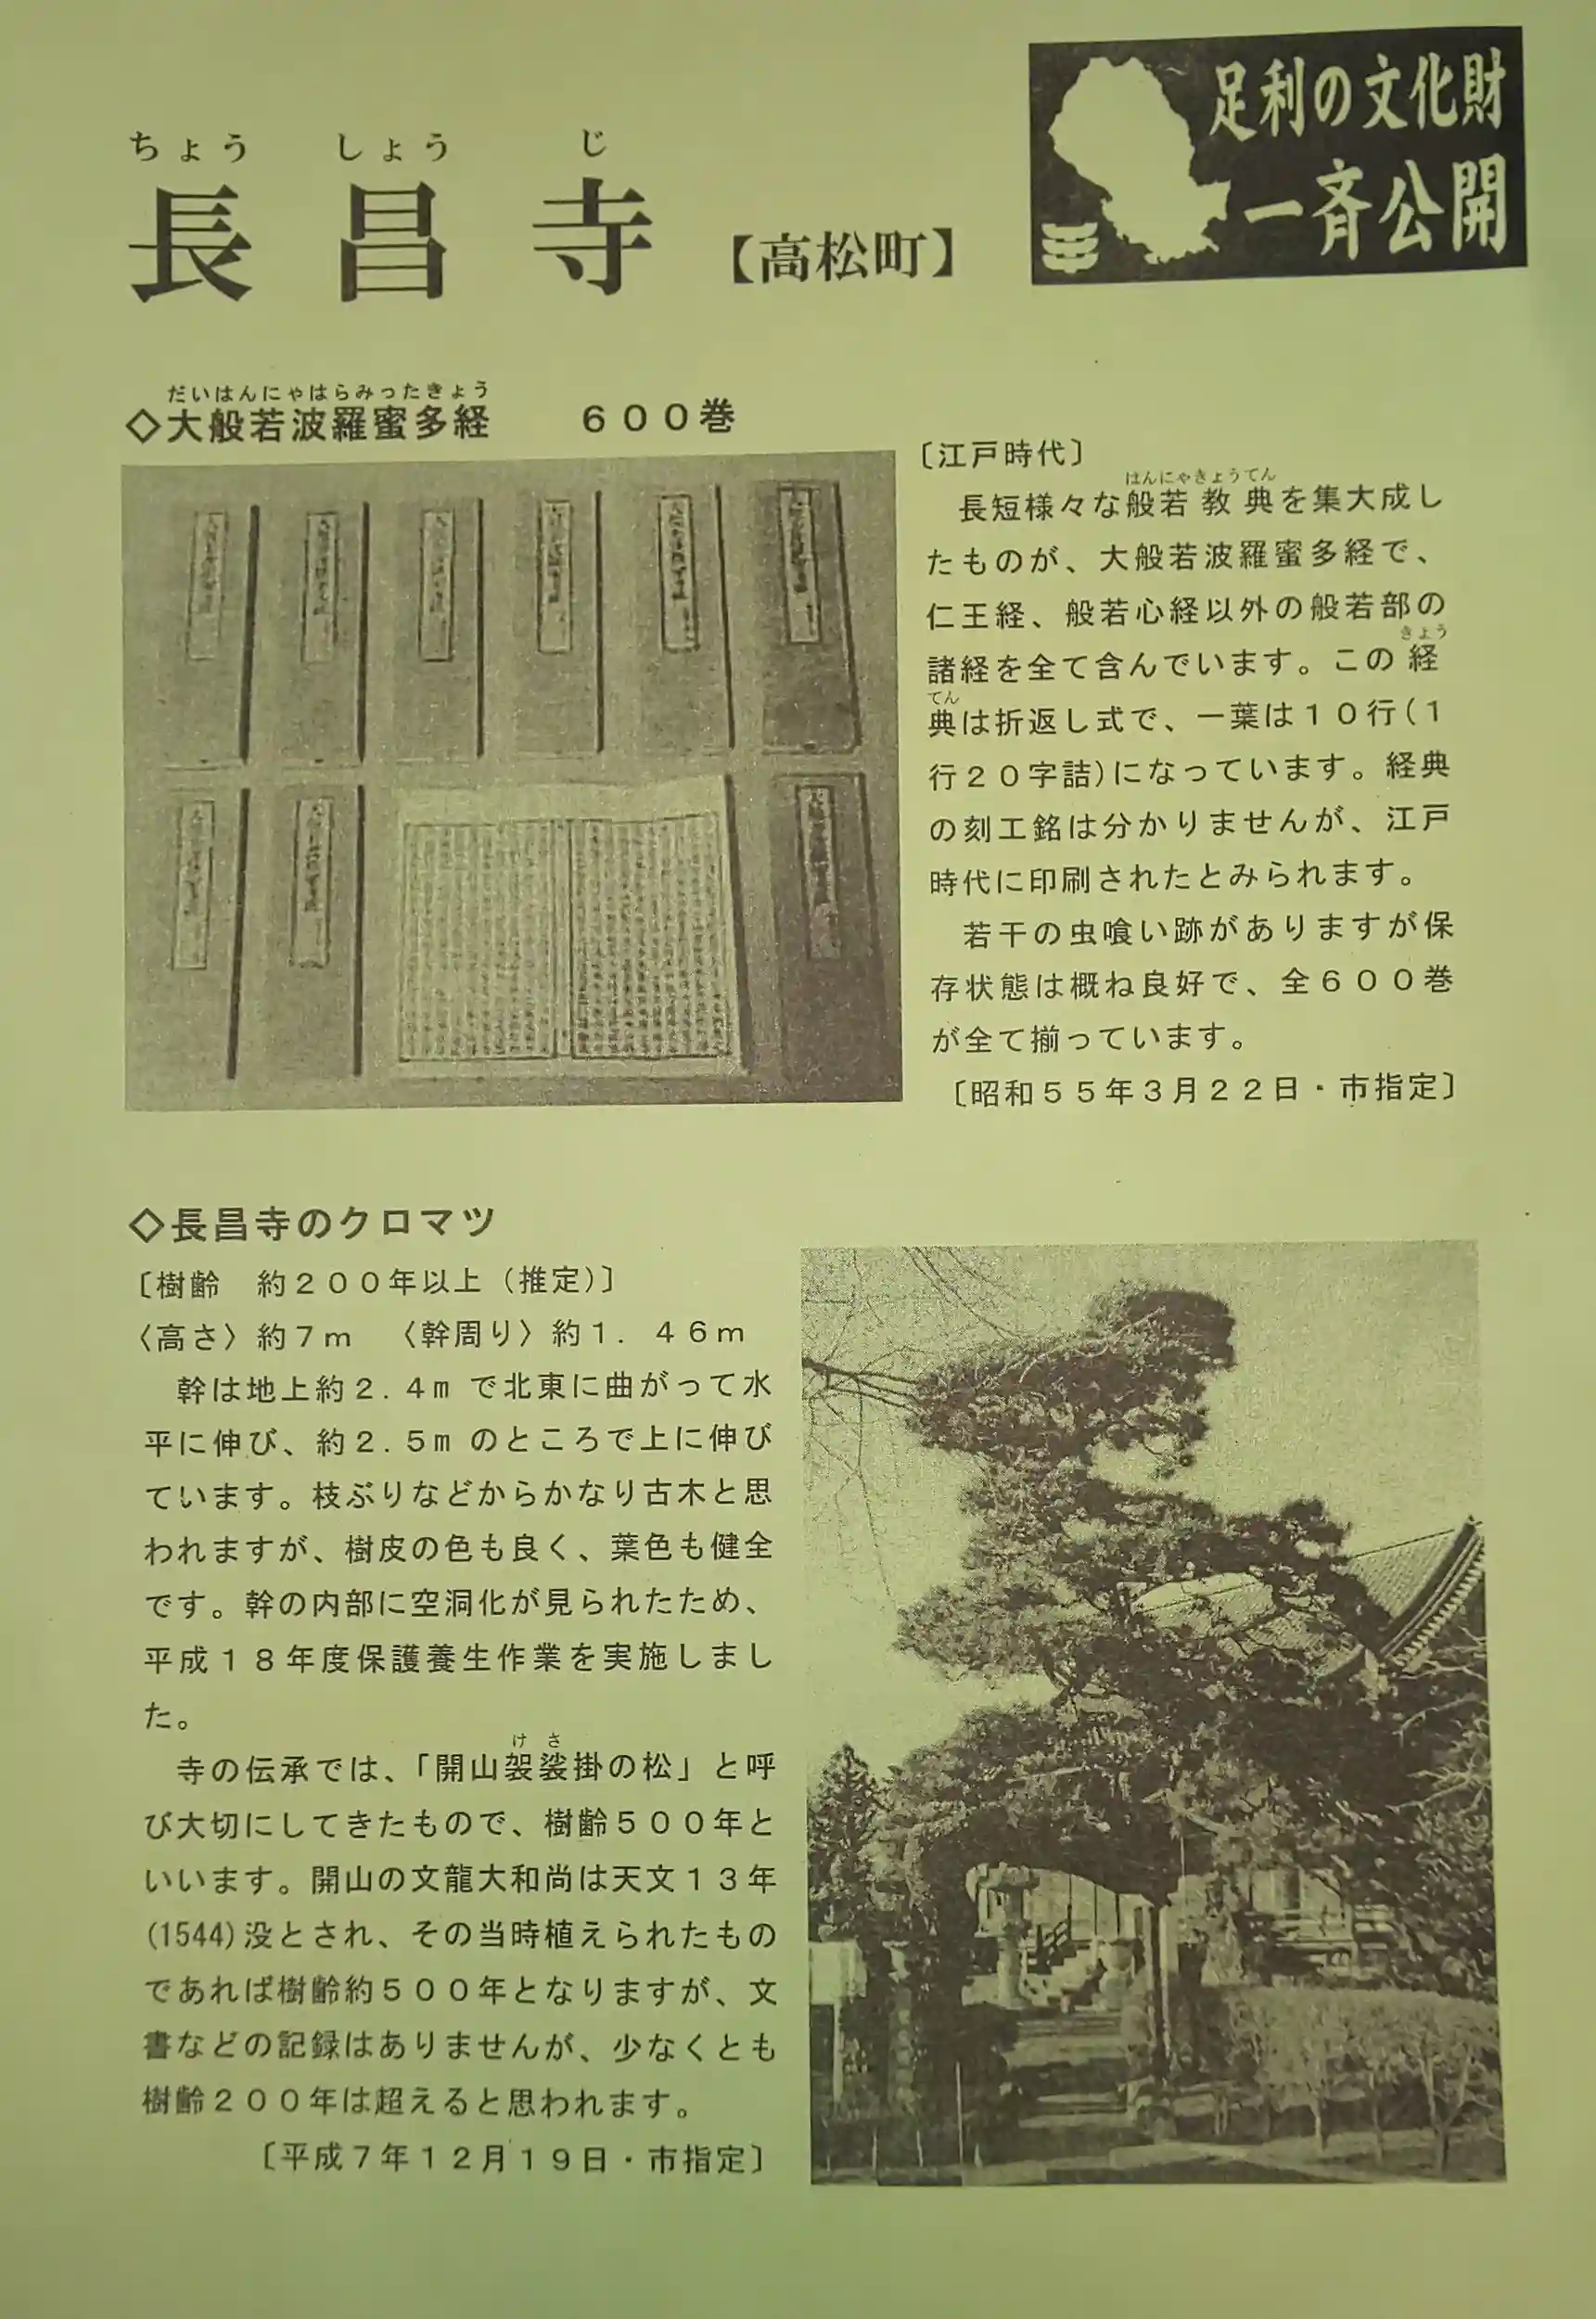 足利の文化財
一斉公開
ちょう しょう じ
長昌寺【高松町】
だいはんにゃはらみったきょう
◇大般若波羅蜜多経 600巻
〔江戸時代〕
はんにゃきょうてん
長短様々な般若教典を集大成し
たものが、大般若波羅蜜多経で、
仁王経、般若心経以外の般若部の
きょう
諸経を全て含んでいます。この経
てん
典は折返し式で、一葉は10行(1
行20字詰)になっています。経典
の刻工銘は分かりませんが、江戸
時代に印刷されたとみられます。
若干の虫喰い跡がありますが保
存状態は概ね良好で、全600巻
が全て揃っています。
〔昭和55年3月22日・市指定〕
◇長昌寺のクロマツ
〔樹齢 約200年以上(推定)〕
〈高さ〉約7m 〈幹周り〉約1.46m
幹は地上約2.4mで北東に曲がって水
平に伸び、約2.5mのところで上に伸び
ています。枝ぶりなどからかなり古木と思
われますが、樹皮の色も良く、葉色も健全
です。幹の内部に空洞化が見られたため、
平成18年度保護養生作業を実施しまし
た。
けさ
寺の伝承では、「開山袈裟掛の松」と呼
び大切にしてきたもので、樹齢500年と
いいます。開山の文龍大和尚は天文13年
(1544)没とされ、その当時植えられたもの
であれば樹齢約500年となりますが、文
書などの記録はありませんが、少なくとも
樹齢200年は超えると思われます。
〔平成7年12月19日・市指定〕